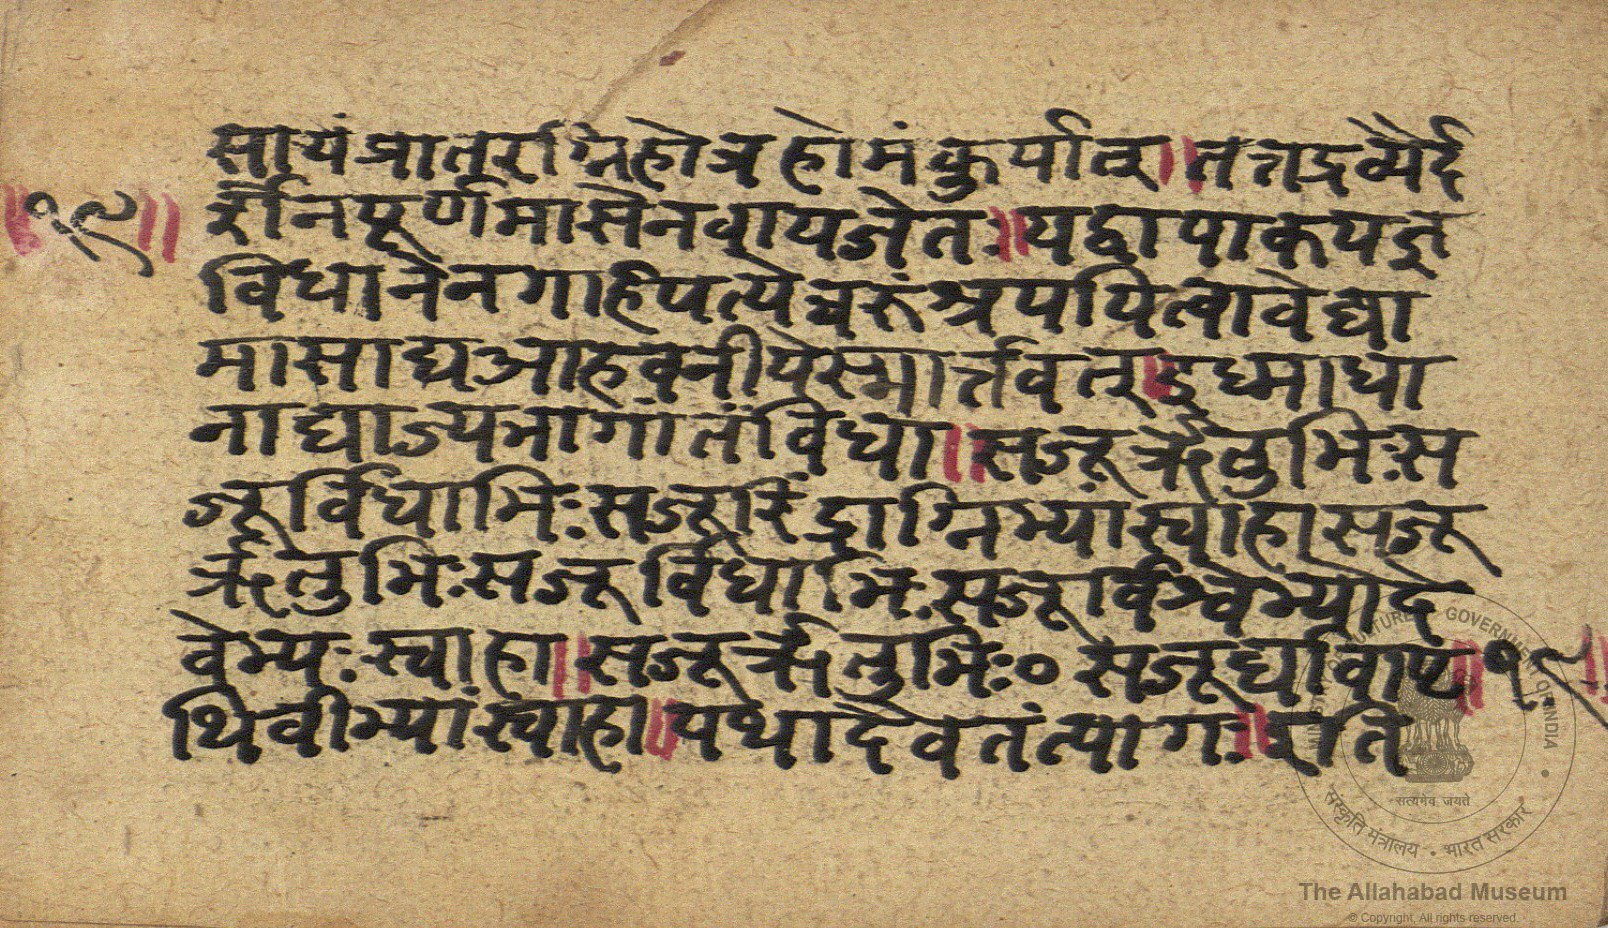 सायंप्रातरग्निहोत्रहोमंकुर्यात्॥तत्तद्रव्यैर्द
॥१९॥
र्शेनपूर्णमासेनवायजेतः॥यद्वापाकयज्ञ
विधानेनगार्हपत्येचरुंश्रपयित्वावेद्या
मासाद्यआहवनीयेस्मार्त्तवत्॥इध्माधा
नाद्याज्यभागांतंविधा॥सजूरृतुभिःस
जूर्विधाभिःसजूरिंद्राग्निभ्यांस्वाहासजू
रृतुभिःसजूर्विधाभिःसजूर्विश्वेभ्योदे
वेभ्यःस्वाहा॥सजूरृतुभिः०सजूर्द्यावापृ॥१९॥
थिवीभ्यांस्वाहा॥यथादैवतंत्यागः॥इति
MINISTRY OF CULTURE GOVERNMENT OF INDIA
सत्यमेव जयते
संस्कृति मंत्रालय • भारत सरकार
The Allahabad Museum
© Copyright, All rights reserved.